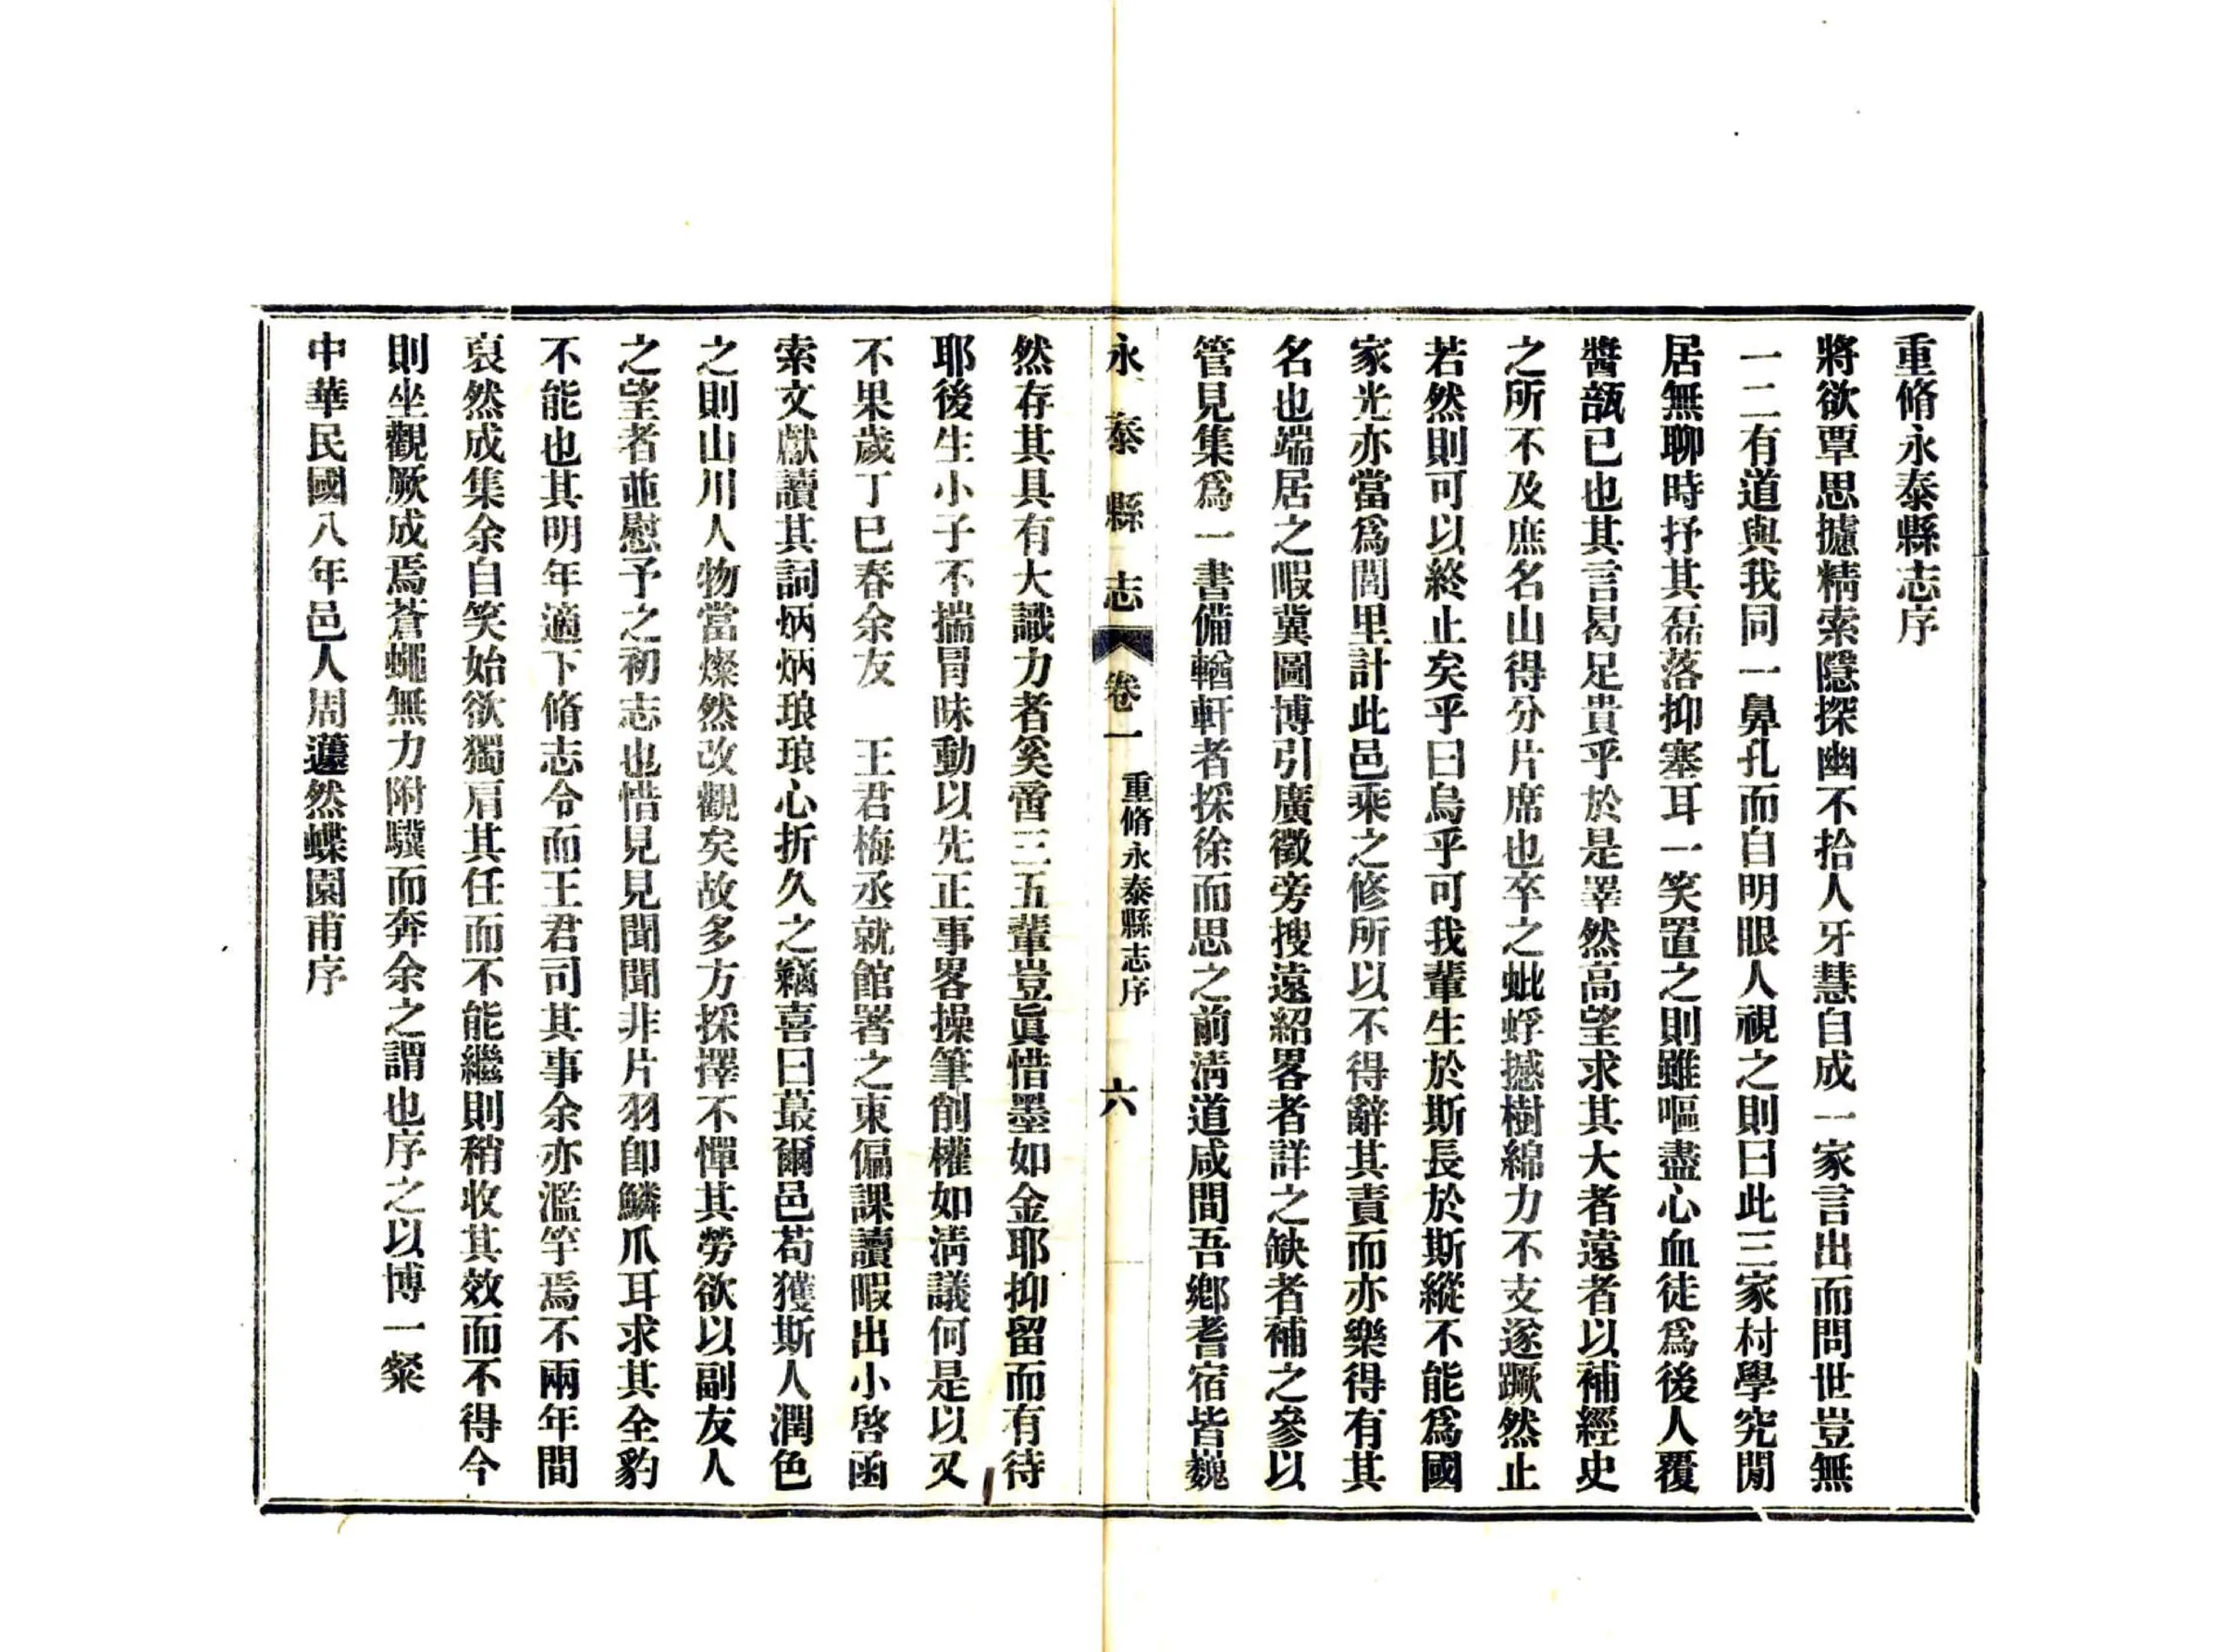 重脩永泰縣志序
將欲覃思攄精索隱探幽不拾人牙慧自成一家言出而問世豈無
一二有道與我同一鼻孔而自明眼人視之則曰此三家村學究閒
居無聊時抒其磊落抑塞耳一笑置之則雖嘔盡心血徒爲後人覆
醬瓿已也其言曷足貴乎於是睪然高望求其大者遠者以補經史
之所不及庶名山得分片席也卒之蚍蜉撼樹綿力不支遂蹶然止
若然則可以終止矣乎曰烏乎可我輩生於斯長於斯縱不能爲國
家光亦當爲閭里計此邑乘之修所以不得辭其責而亦樂得有其
名也端居之暇冀圖博引廣徵旁搜遠紹畧者詳之缺者補之參以
管見集爲一書備輶軒者採徐而思之前淸道咸間吾鄕耆宿皆巍
永泰縣志
卷一
重脩永泰縣志序
六
然存其具有大識力者奚啻三五輩豈眞惜墨如金耶抑留而有待
耶後生小子不揣冒昧動以先正事畧操筆削權如淸議何是以又
不果歲丁巳春余友 王君梅丞就館署之東偏課讀暇出小啓函
索文獻讀其詞炳炳琅琅心折久之竊喜曰蕞爾邑苟獲斯人潤色
之則山川人物當燦然改觀矣故多方採擇不憚其勞欲以副友人
之望者並慰予之初志也惜見見聞聞非片羽卽鱗爪耳求其全豹
不能也其明年適下脩志令而王君司其事余亦濫竽焉不兩年間
裒然成集余自笑始欲獨肩其任而不能繼則稍收其效而不得今
則坐觀厥成焉蒼蠅無力附驥而奔余之謂也序之以博一粲
中華民國八年邑人周蘧然蝶園甫序